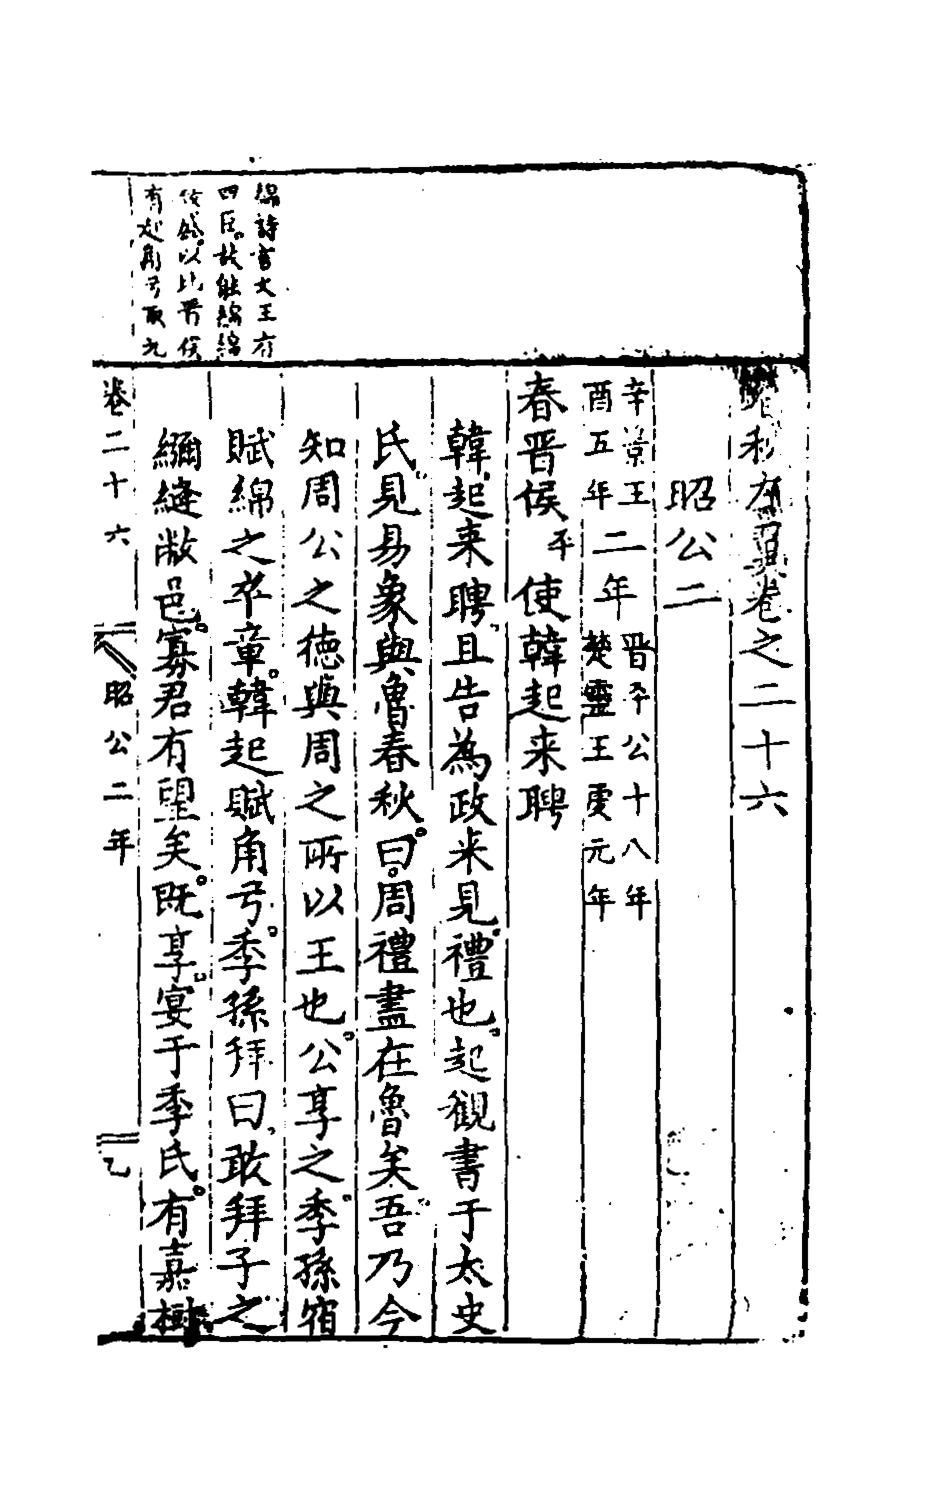 秋左翼卷之二十六
昭公二
辛景王
酉五年
二年
晋平公十八年
楚靈王虔元年
春晋侯平使韓起来聘
韓起来聘且告為政来見禮也。起觀書于太史
氏見易象與魯春秋。曰。周禮盡在魯矣。吾乃今
知周公之徳與周之所以王也。公享之。季孫宿
賦綿之卒章。韓起賦角弓。季孫拜曰、敢拜子之
綳縫敝邑。寡君有望矣。既享。宴于季氏。有嘉樹
綿詩言文王有
四臣。故能綿綿
以比晋侯
有起角弓取兄
卷二十六
昭公二年
乙